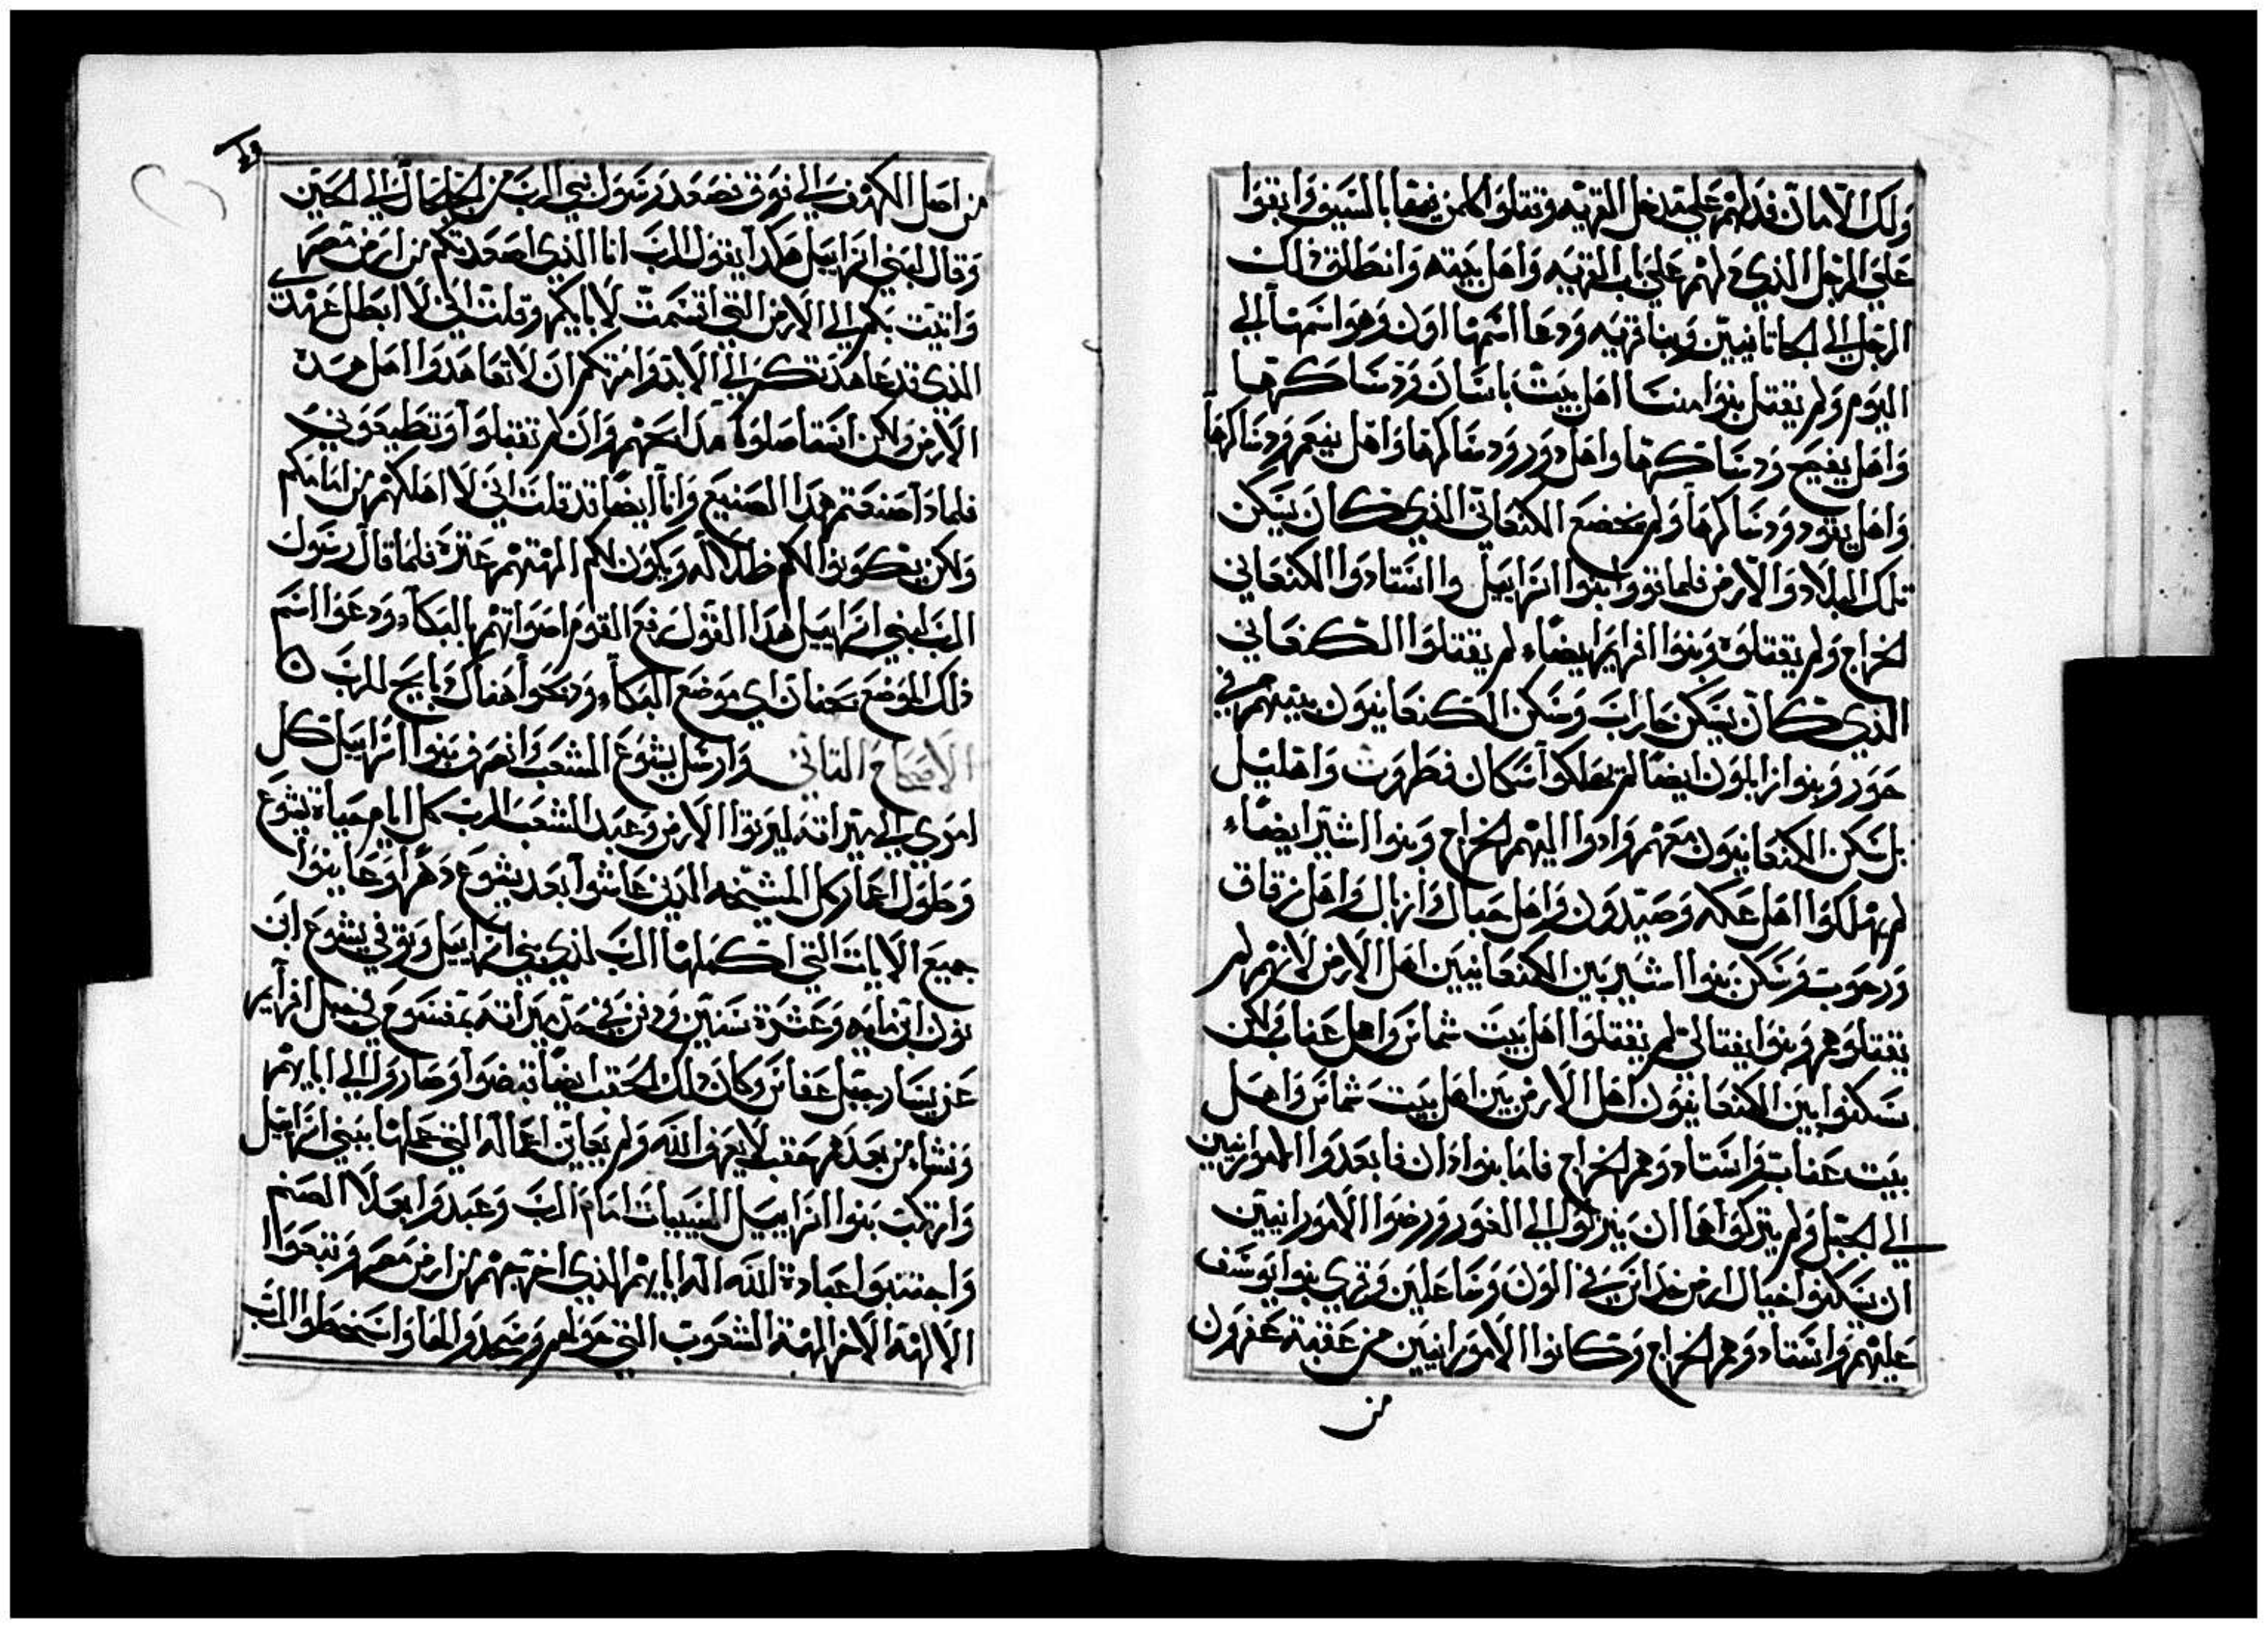 ولك الامان فدلهم علي مدخل القريه وقتلوا كلمن فيها بالسيف وابقوا
علي الرجل الذي دلهم علي باب القريه واهل بيته وانطلق ذلك
الرجل الي الحاتانيين وبنا قريه ودعا اسمها اون وهو اسمها الي
اليوم ولم يقتل بنوا منسا اهل بيت باسان ودساكرها
واهل يفيح ودساكرها واهل دور ودساكرها واهل يفعم ودساكرها
واهل يقود ودساكرها ولم يخضع الكنعاني الذي كان يسكن
تلك البلاد والارض فلما تقووا بنوا اسراييل وااستادوا الكنعاني
الخراج ولم يقتلوه وبنوا افرايم ايضاء لم يقتلوا الكنعاني
الذي كان يسكن جاراب وسكن الكنعانيون بينهم في
حور وبنوا زابلون ايضا لم يهلكوا سكان فطروت واهليل
بل سكن الكنعانيون معهم وادوا اليهم الخراج وبنوا اشير ايضاء
لم يهلكوا اهل عكه وصيدون واهل حبال وانهال واهل زقاق
ورحوب وسكن بنوا اشير بين الكنعانيين اهل الارض لانهم لم
يقتلوهم وبنوا يفتالي لم يقتلوا اهل بيت شماس واهل عناب ولكن
سكنوا بين الكنعانيون اهل الارض بين اهل بيت شماس واهل
بيت عناب واستادوهم الخراج فاما بنوا دان فابعدوا الامورانيين
الي الجبل ولم يتركوها ان ينزلوا الي الغور ورضوا الامورانيين
ان يسكنوا جبال ارض حداس في الون وحاعلين وقري بنوا يوسف
عليهم واستادوهم الخراج وكانوا الامورانيين من عقبة عفرون
من
من اصل الكهف الي فوق فصعد رسول نبي الرب من الجلجال الي الحين
وقال لبني اسراييل هكدا يقول الرب انا الذي اصعدتكم من ارض مصر
واتيت بكم الي الارض التي اقسمت لابايكم وقلت اني لا ابطل عهدي
الذي قد عاهدتكم الي الابد وامرتكم ان لا تعاهدوا اهل هده
الارض ولكن استاصلوا مدابحهم وان لم تقبلوا وتطيعوني
فلمادا صنعتم هدا الصنيع وانا ايضا قد قلت اني لا اهلكهم من امامكم
ولكن يكونوا لكم ظلاله ويكون لكم الهتهم عترة فلما قال رسول
الرب لبني اسراييل هدا القول رفع القوم اصواتهم بالبكاء ودعوا اسم
ذلك الموضع بحنان اي موضع البكاء ودبحوا هناك دبايح للرب
الاصحاح الثاني وارسل يشوع الشعب وانصرف بنوا اسراييل كل
امري الي ميراته ليرتوا الارض وعبد الشعب الرب كل ايام حياة يشوع
وطول اعمار كل المشيخه الدين عاشوا بعد يشوع دهرا وعاينوا
جميع الايات التي اكملها الرب لدي بني اسراييل وتوفي يشوع ابن
نون ابن مايه وعشرة سنين ودفن في حد ميراته بتمنسوع في جبل افرايم
عن يسار جبل عفاس وكان دلك الحقب ايضا قبضوا وصاروا الي ابايهم
ونشاء من بعدهم حقب لا يعرف الله ولم يعاين اعماله التي عملها ببني اسراييل
وارتكب بنوا اسراييل السيييات امام الرب وعبدوا بعلا الصنم
واجتنبوا عبادة الله اله ابايهم الذي اخرجهم من ارض مصر وتبعوا
الالهة الاخر الهة الشعوب التي حولهم وسجدوا لها واسخطوا الرب